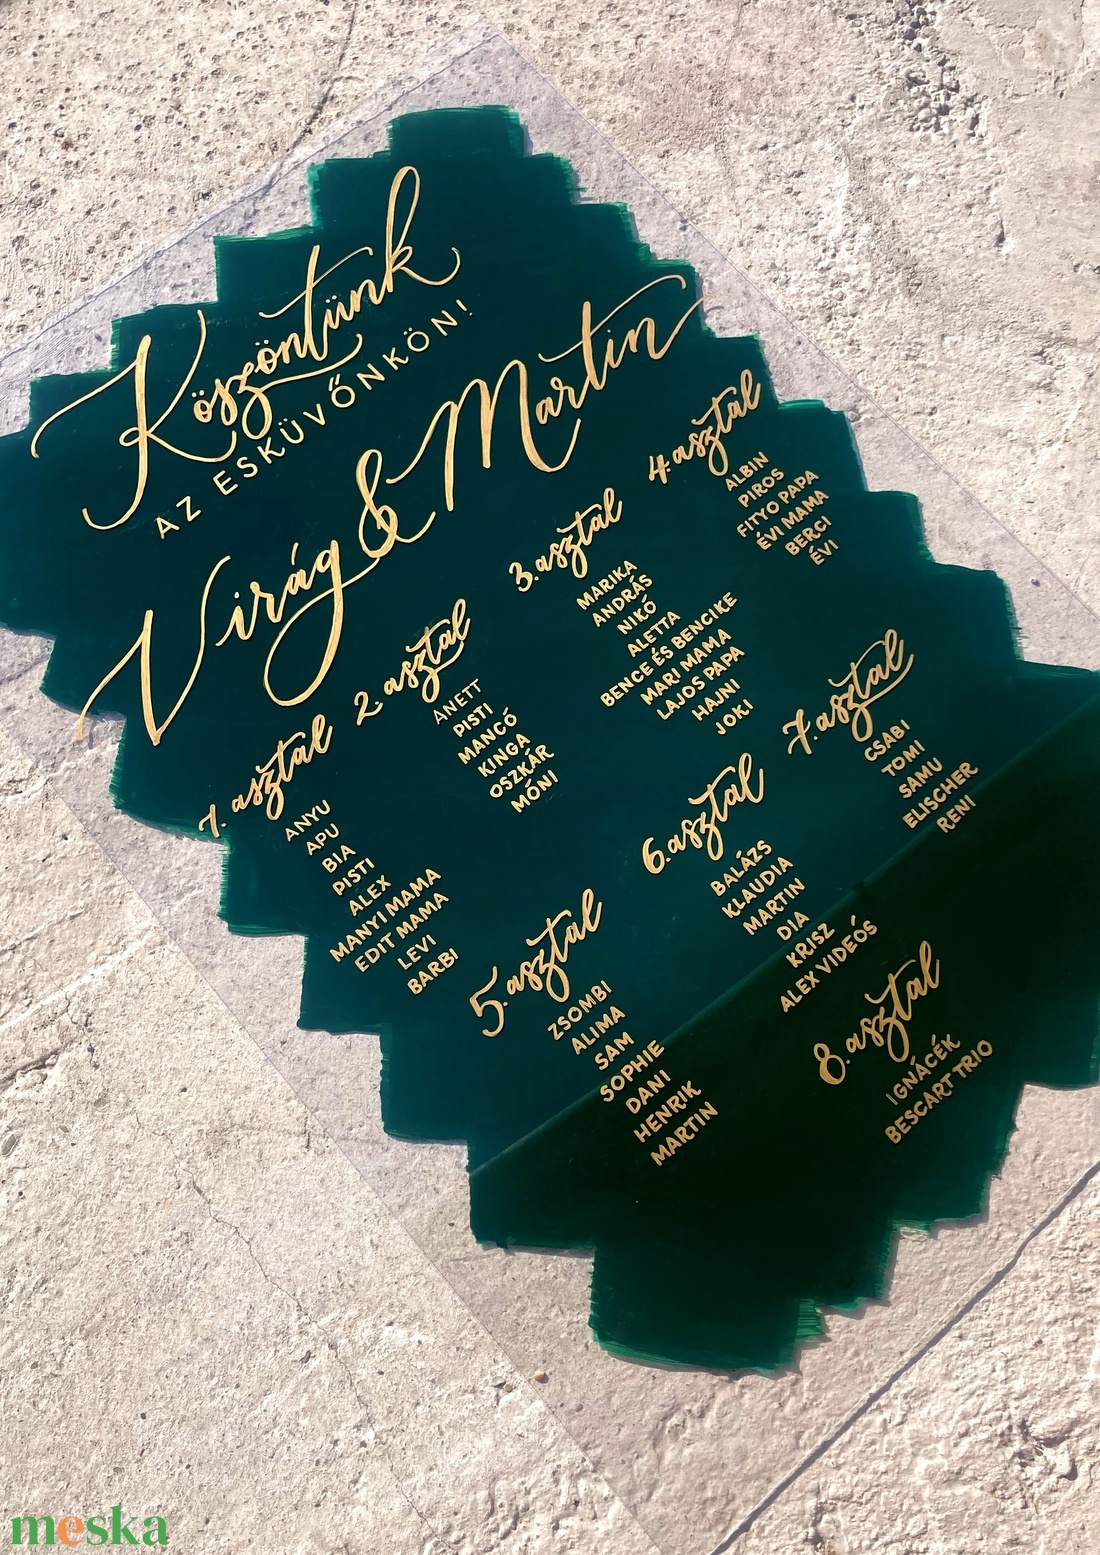 Köszöntünk
AZ ESKÜVŐNKÖN!
Virág & Martin
1. asztal
ANYU
APU
BIA
PISTI
ALEX
MANYI MAMA
EDIT MAMA
LEVI
BARBI
2. asztal
ANETT
PISTI
MANCÓ
KINGA
OSZKÁR
MÓNI
3. asztal
MARIKA
ANDRÁS
NIKÓ
ALETTA
BENCE ÉS BENCIKE
MARI MAMA
LAJOS PAPA
HAJNI
JOKI
4. asztal
ALBIN
PIROS
FITYO PAPA
ÉVI MAMA
BERCI
ÉVI
5. asztal
ZSOMBI
ALIMA
SAM
SOPHIE
DANI
HENRIK
MARTIN
6. asztal
BALÁZS
KLAUDIA
MARTIN
DIA
KRISZ
ALEX VIDEÓS
7. asztal
CSABI
TOMI
SAMU
ELISCHER
RENI
8. asztal
IGNÁCÉK
BESCART TRIO
meska